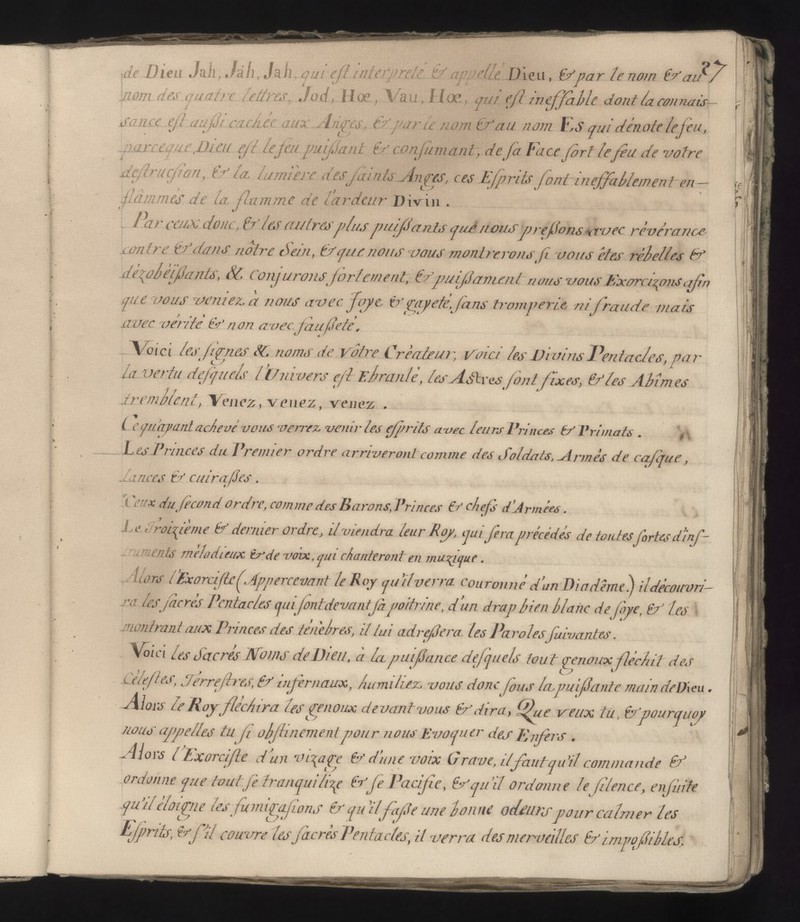 37
de Dieu Jah, Jah, Jah, qui eſt interpreté & appellé Dieu, & par le nom & au
nom des quatre lettres, Jod, Hœ, Vau, Hœ, qui eſt ineffable dont la connais-
sance eſt auſſi cachée aux Anges, & par le nom & au nom ES qui dénote le feu,
parceque Dieu eſt le feu puiſſant & conſumant, de ſa Face ſort le feu de votre
deſtrucſion, & la lumiere des ſaints Anges, ces Eſprits ſont ineffablement en-
flammés de la flamme de l'ardeur Divin.
Par ceux donc, & les autres plus puiſſants que nous preſſons avec révérance
contre & dans nôtre Sein, & que nous vous montrerons ſi vous êtes rébelles &
dézobéïſſants, & conjurons fortement, & puiſſament nous vous Exorcizons afin
que vous veniez à nous avec Joye & gayeté, ſans tromperie ni fraude mais
avec vérité & non avec fauſſeté.
Voici les ſignes & noms de Vôtre Créateur, Voici les Divins Pentacles, par
la vertu deſquels l'Univers eſt Ebranlé, les Aſtres ſont fixes, & les Abîmes
tremblent, Venez, venez, venez.
Ce qu'ayant achevé vous verrez venir les eſprits avec leurs Princes & Primats.
Les Princes du Premier ordre arriveront comme des Soldats, Armés de caſque,
Lances & cuiraſſes.
Ceux du ſecond ordre, comme des Barons, Princes & chefs d'Armées.
Le Troizième & dernier ordre, il viendra leur Roy, qui ſera précédés de toutes ſortes d'inſ-
truments mélodieux & de voix, qui chanteront en muzique.
Alors l'Exorciſte (Appercevant le Roy qu'il verra couronné d'un Diadême.) il découvri-
ra les ſacrés Pentacles qui ſont devant ſa poitrine, d'un drap bien blanc de ſoye, & les
montrant aux Princes des ténèbres, il lui adreſſera les Paroles ſuivantes.
Voici les Sacrés Noms de Dieu, à la puiſſance deſquels tout genoux fléchit des
Céleſtes, Térreſtres, & infernaux, humiliez vous donc ſous la puiſſante main de Dieu.
Alors le Roy fléchira les genoux devant vous & dira, Que veux tu, & pourquoy
nous appelles tu ſi obſtinement pour nous Evoquer des Enfers.
Alors l'Exorciſte d'un vizage & d'une voix Grave, il faut qu'il commande &
ordonne que tout ſe tranquilize & ſe Pacifie, & qu'il ordonne le ſilence, enſuite
qu'il éloigne les fumigaſions & qu'il faſſe une bonne odeurs pour calmer les
Eſprits, & ſ'il couvre les ſacrés Pentacles, il verra des merveilles & impoſſibles.